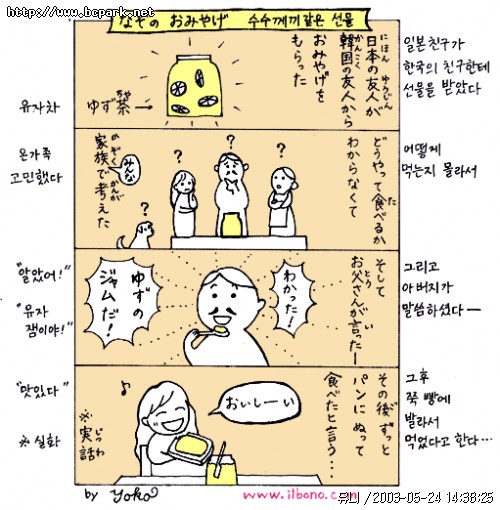 http://www.bcpark.net
なぞの おみやげ 수수께끼같은 선물
日本の友人が
にほん ゆうじん
韓国の友人から
かんこく
おみやげを
もらった
ゆず茶→
ちゃ
유자차
일본친구가
한국의 친구한테
선물을 받았다
どうやって食べるか
た
わからなくて
?
?
?
?
みんな
家族で考えた
かぞく かんが
온가족
고민했다
어떻게
먹는지 몰라서
そして
お父さんが言ったー
とう い
わかった!
ゆずの
ジャムだ!
"알았어!"
"유자
잼이야!"
그리고
아버지가
말씀하셨다ー
その後ずっと
ご
パンにぬって
食べたと言う…
おいしーい
♪
※実話
じつわ
"맛있다"
※실화
그후
쭉 빵에
발라서
먹었다고 한다…
by yoko
www.ilbono.com
유니 / 2003-05-24 14:38:25